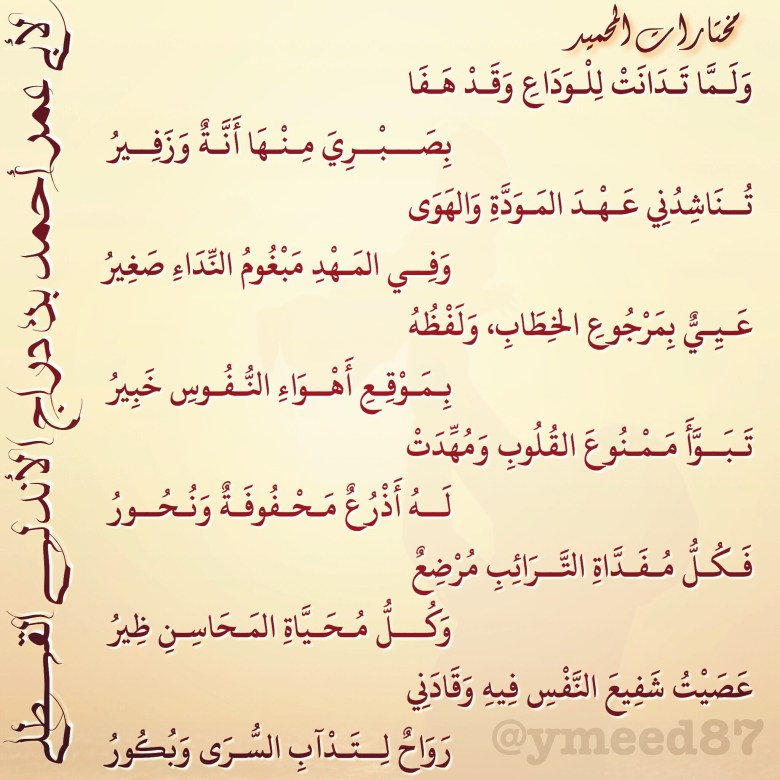 مختارات المحميد
وَلَمَّا تَدَانَتْ لِلْوَدَاعِ وَقَدْ هَفَا
بِصَبْرِيَ مِنْهَا أَنَّةٌ وَزَفِيرُ
تُنَاشِدُنِي عَهْدَ المَوَدَّةِ وَالهَوَى
وَفِي المَهْدِ مَبْغُومُ النِّدَاءِ صَغِيرُ
عَيِيٌّ بِمَرْجُوعِ الخِطَابِ، وَلَفْظُهُ
بِمَوْقِعِ أَهْوَاءِ النُّفُوسِ خَبِيرُ
تَبَوَّأَ مَمْنُوعَ القُلُوبِ وَمُهِّدَتْ
لَهُ أَذْرُعٌ مَحْفُوفَةٌ وَنُحُورُ
فَكُلُّ مُفَدَّاةِ التَّرَائِبِ مُرْضِعٌ
وَكُلُّ مُحَيَّاةِ المَحَاسِنِ ظِيرُ
عَصَيْتُ شَفِيعَ النَّفْسِ فِيهِ وَقَادَنِي
رَوَاحٌ لِتَدْآبِ السُّرَى وَبُكُورُ
لأبي عمر أحمد بن دراج الأندلسي القسطلي
@ymeed87